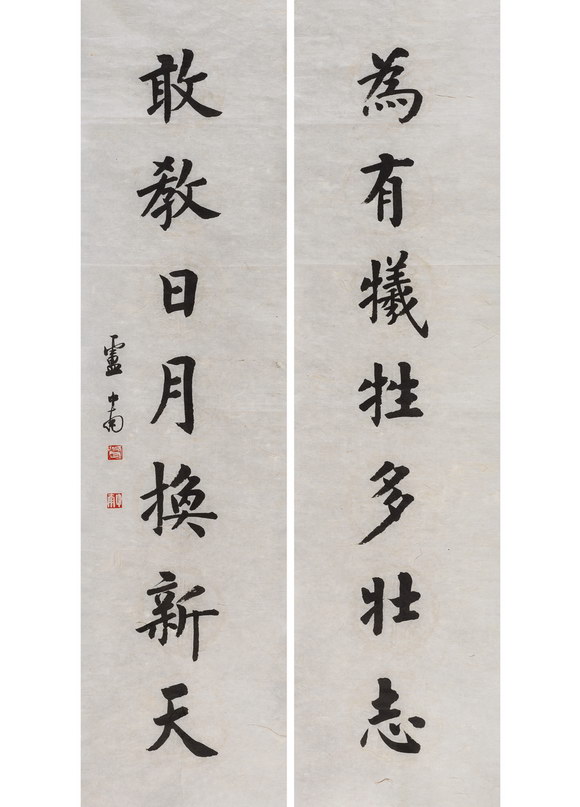 為有犧牲多壯志
敢教日月換新天
盧中南